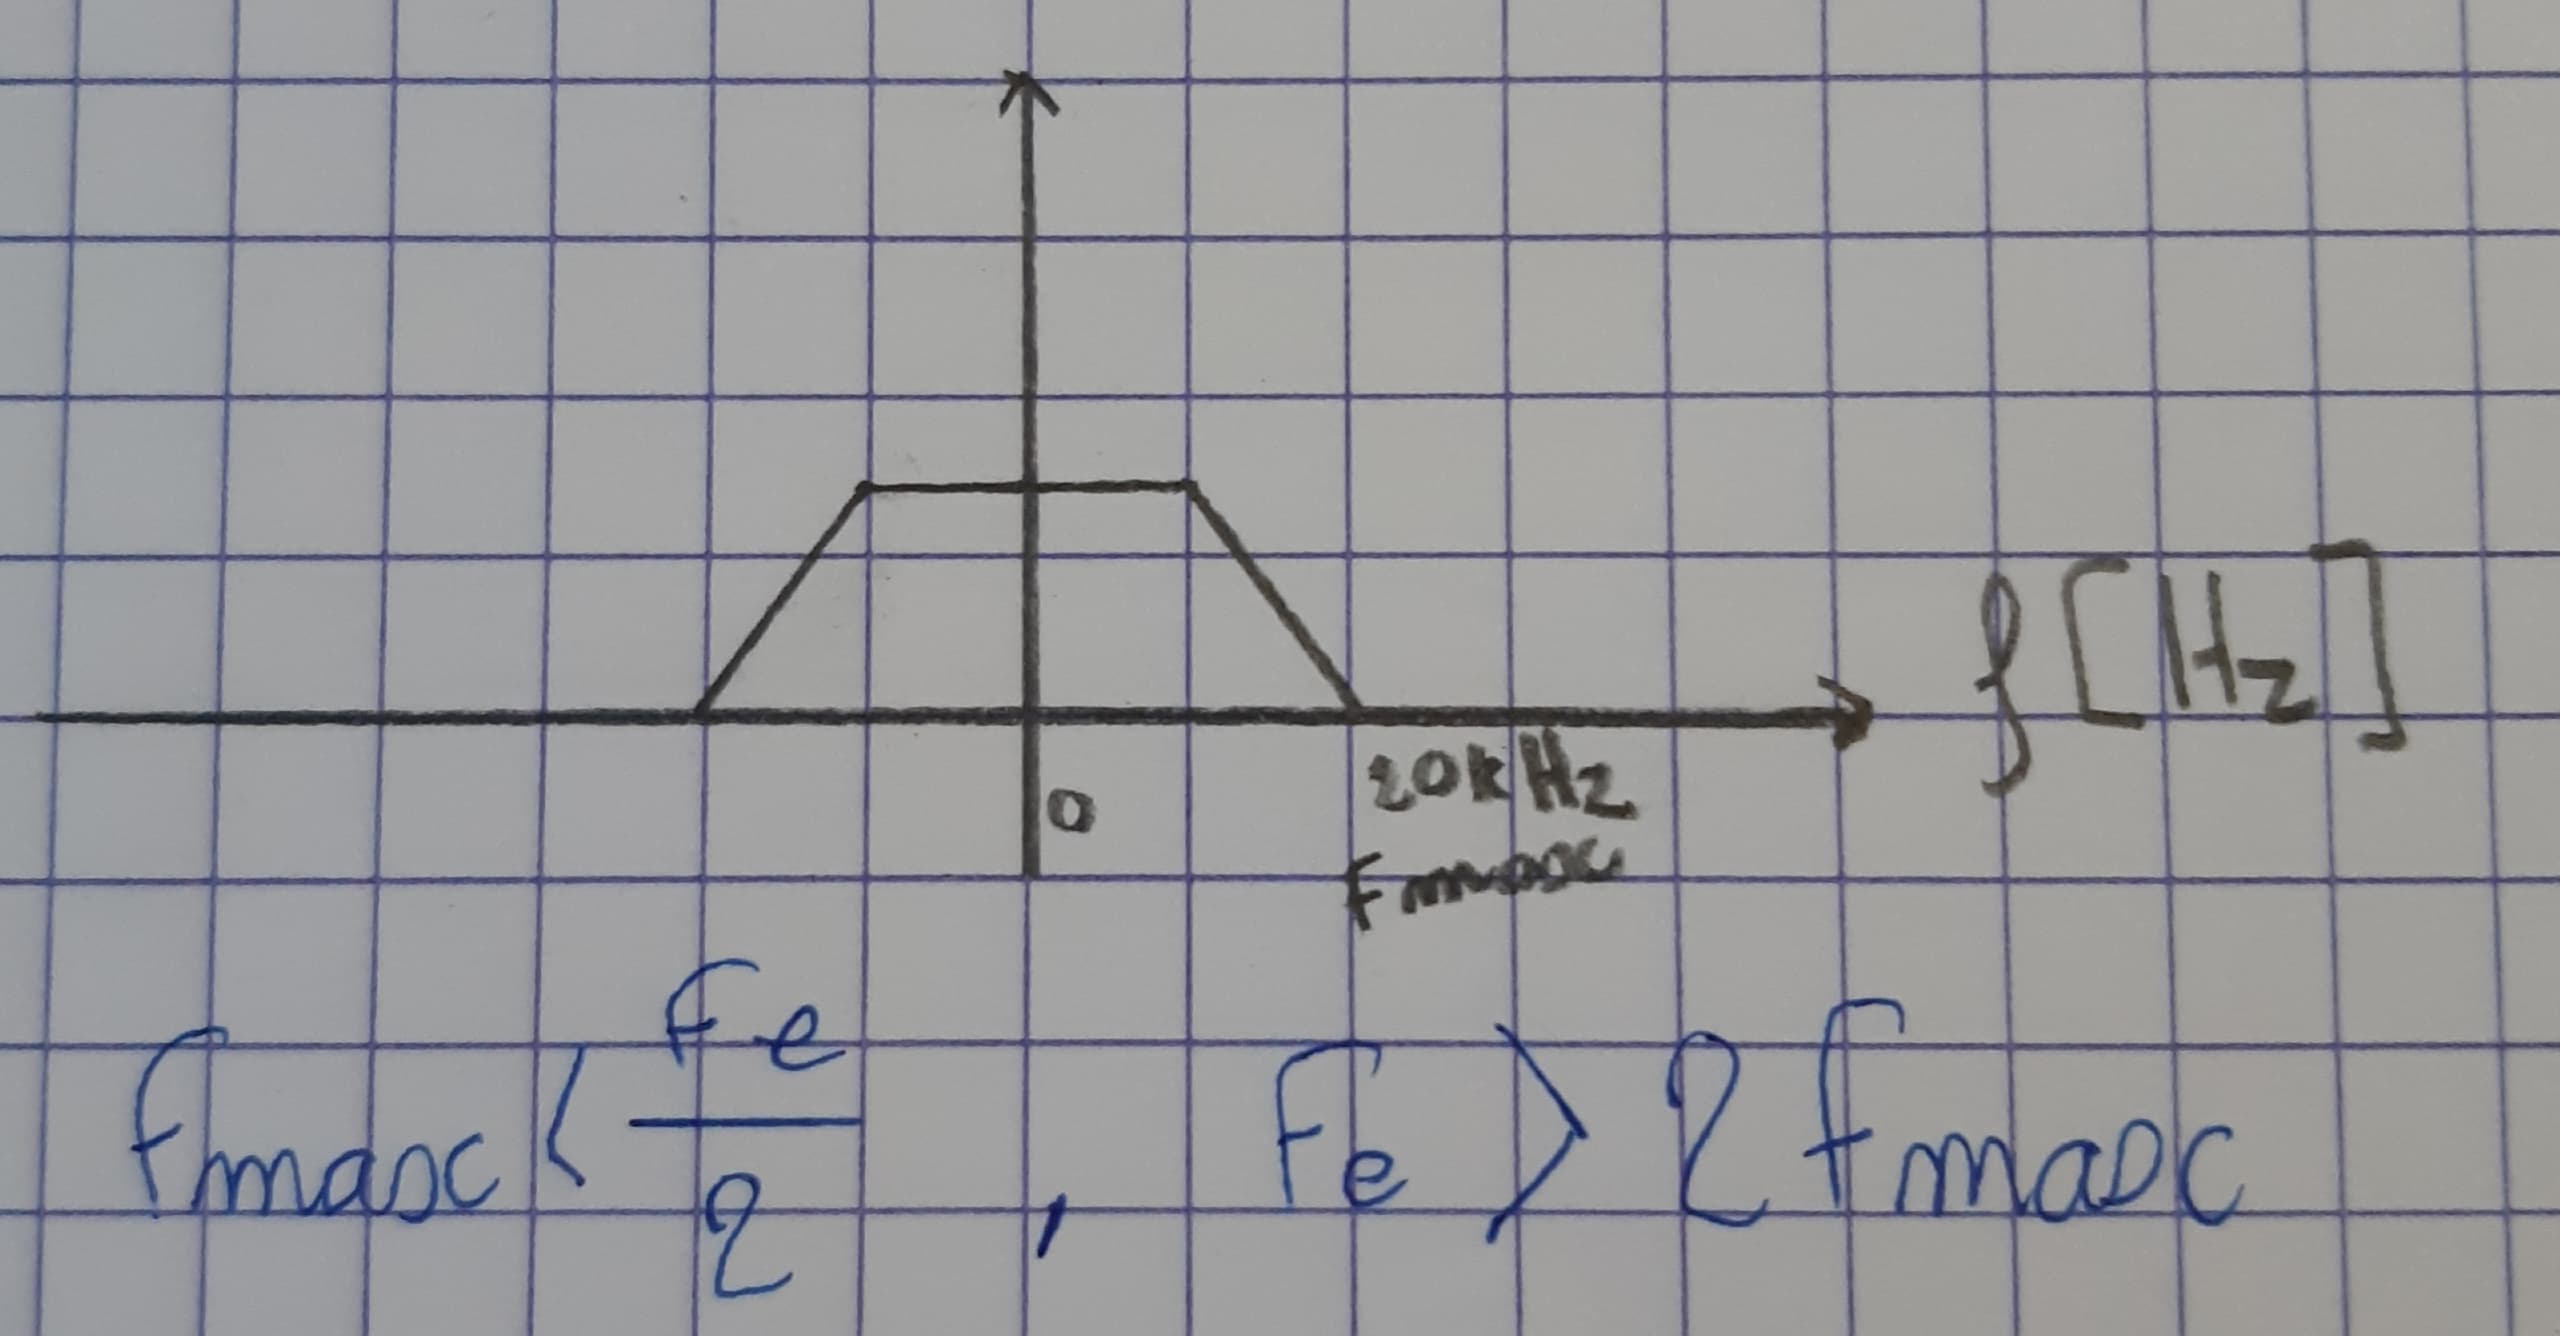 f [Hz]
0
20kHz
Fmax
fmax < Fe/2 , Fe > 2 fmax